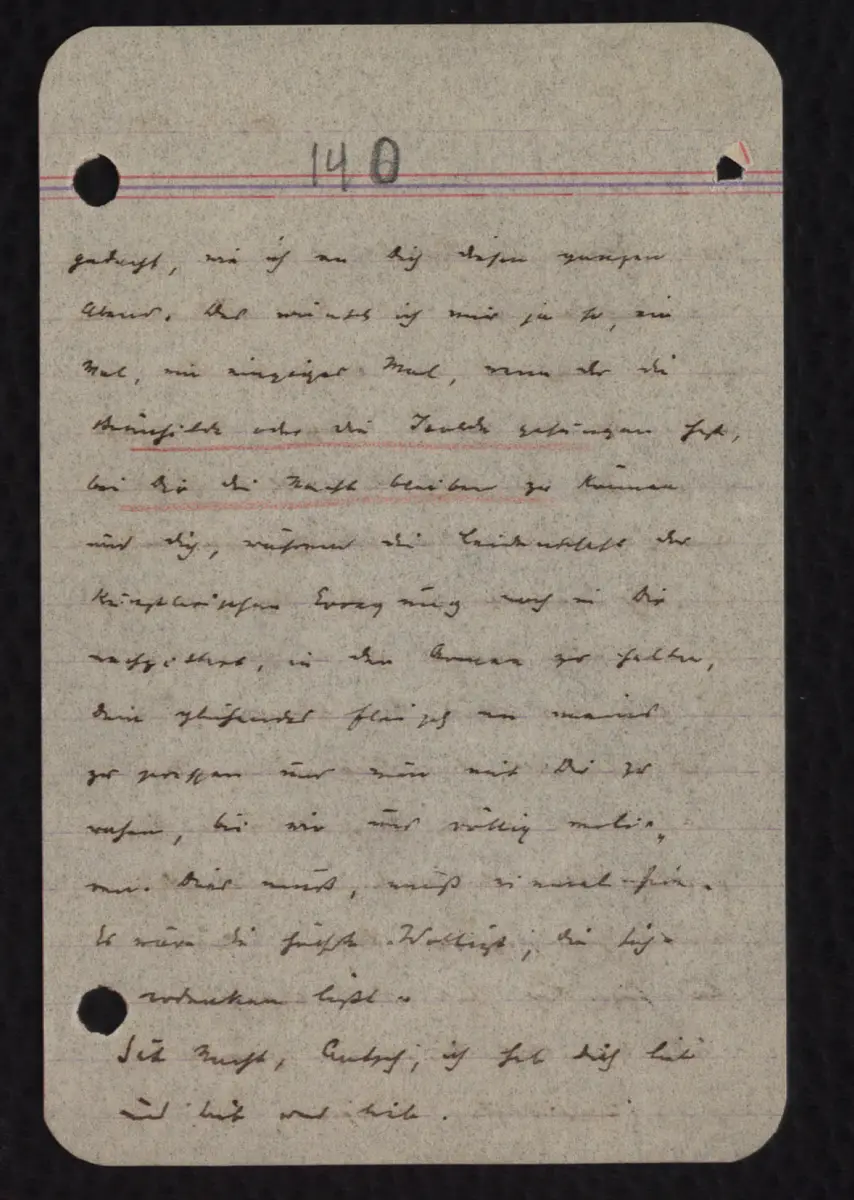 140
gedacht, wie ich an Dich diesen ganzen
Abend. Das wünsch ich mir ja so, ein
Mal, ein einziges Mal, wenn du die
Brünhilde oder die Isolde gesungen hast,
bei Dir die Nacht bleiben zu können
und dich, während die Leidenschaft der
künstlerischen Erregung noch in Dir
nachzittert, in den Armen zu halten,
dein glühendes Fleisch an meines
zu pressen und nun mit Dir zu
rasen, bis wir uns völlig
Dies muß, muß einmal sein.
Es wäre die höchste Wollust, die sich
erdenken läßt.
Nacht, ich hab dich lieb
und lieb und lieb.